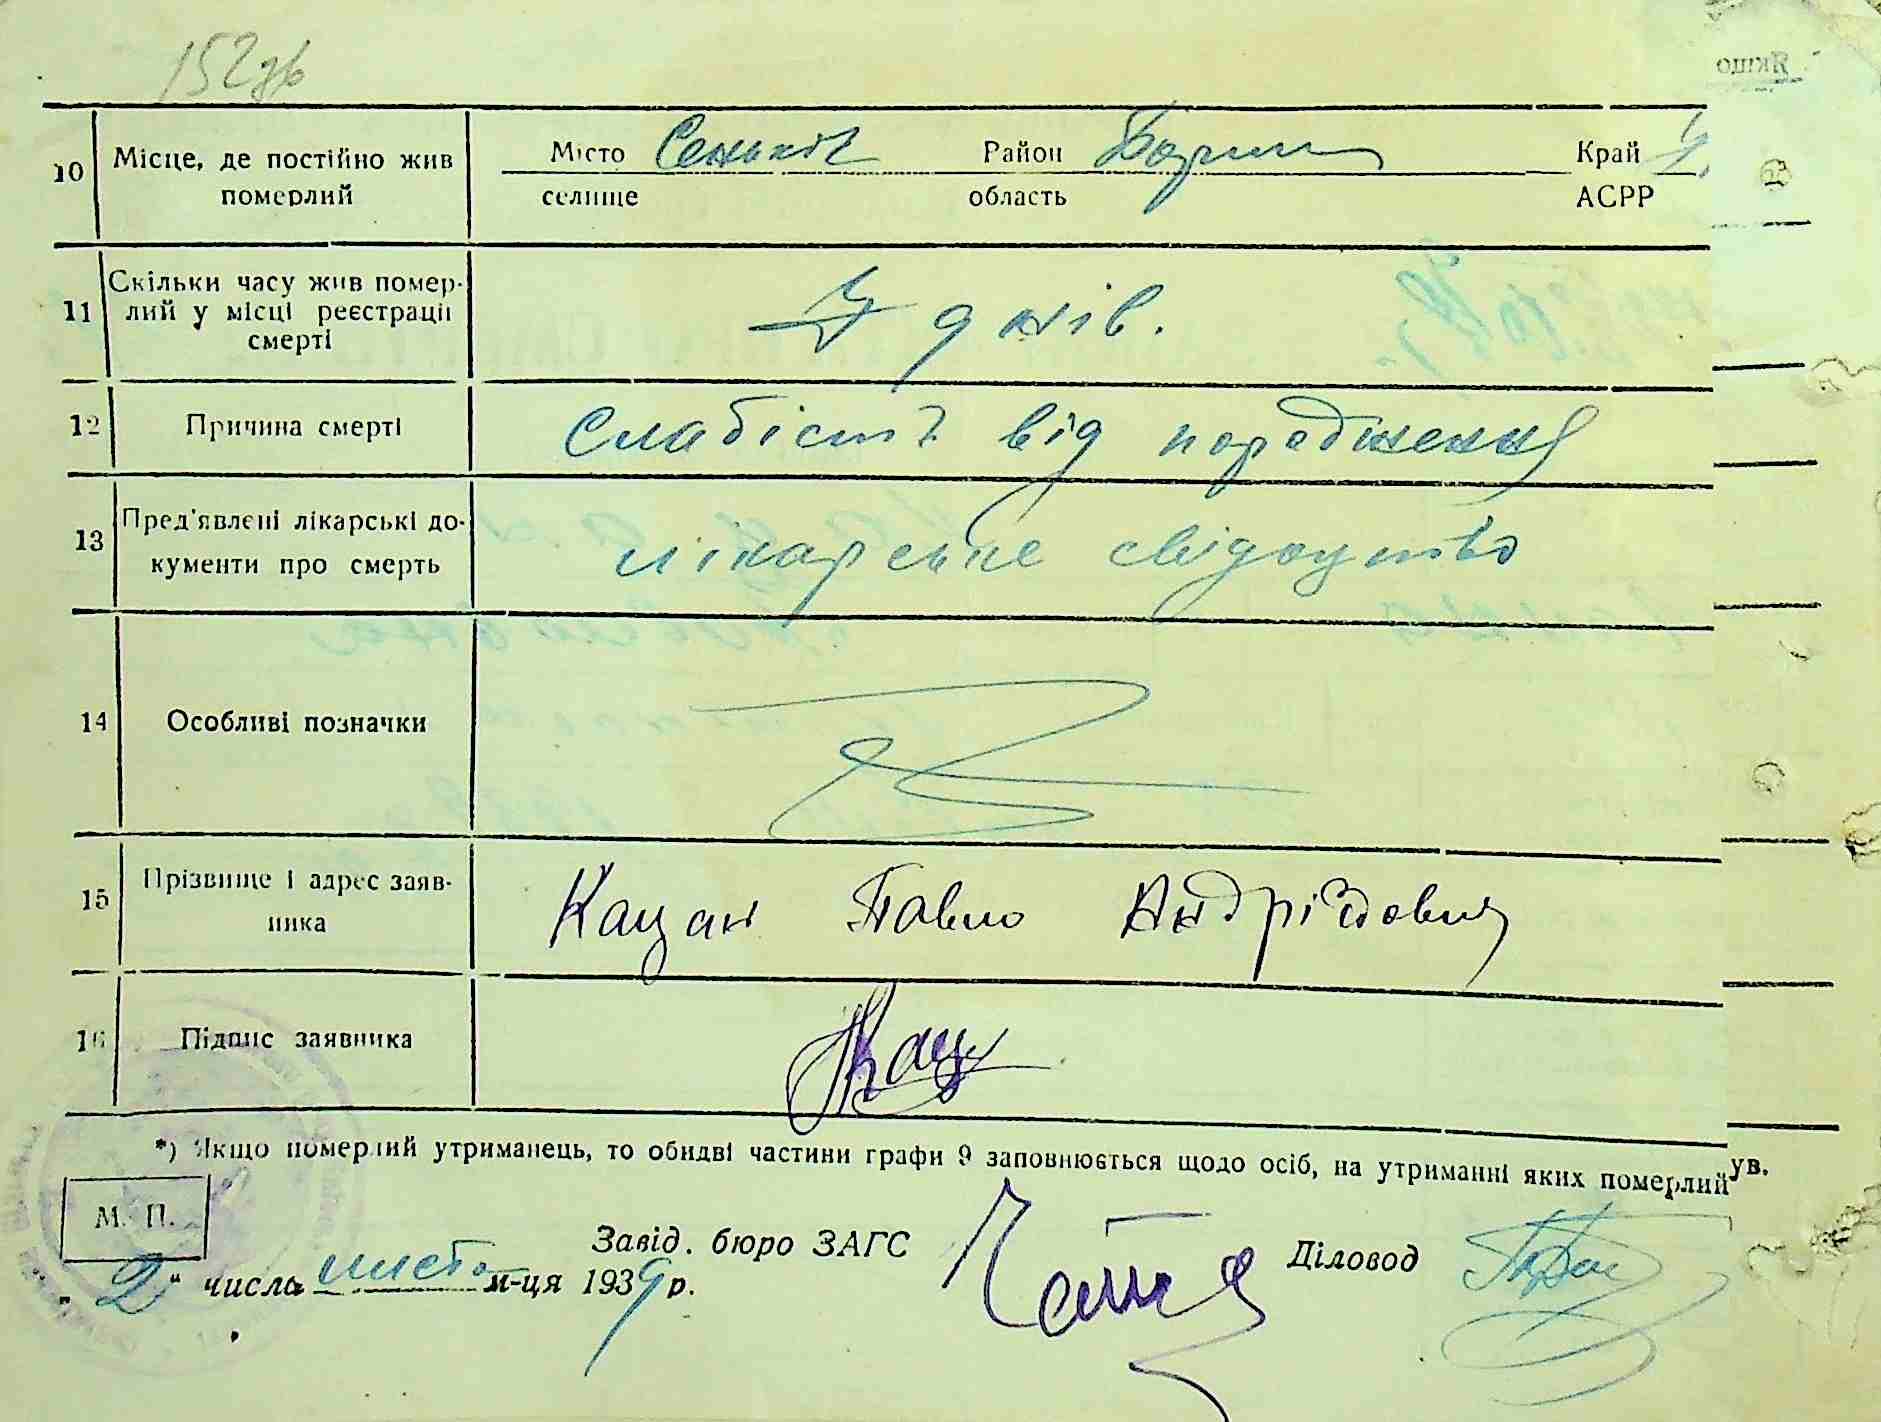 152зв
10 Місце, де постійно жив померлий Місто Сеньків Район Борисп Край
селище область АСРР
11 Скільки часу жив помер-
лий у місці реєстрації
смерті 7 днів.
12 Причина смерті Слабість від породження
13 Пред'явлені лікарські до-
кументи про смерть лікарське свідоцтво
14 Особливі позначки
15 Прізвище і адрес заяв-
ника Кацан Павло Андрійович
16 Підпис заявника Кац
*) Якщо померлий утриманець, то обидві частини графи 9 заповнюється щодо осіб, на утриманні яких померлий ув.
М. П.
Завід. бюро ЗАГС Діловод
„2" числа листо м-ця 1939 р.